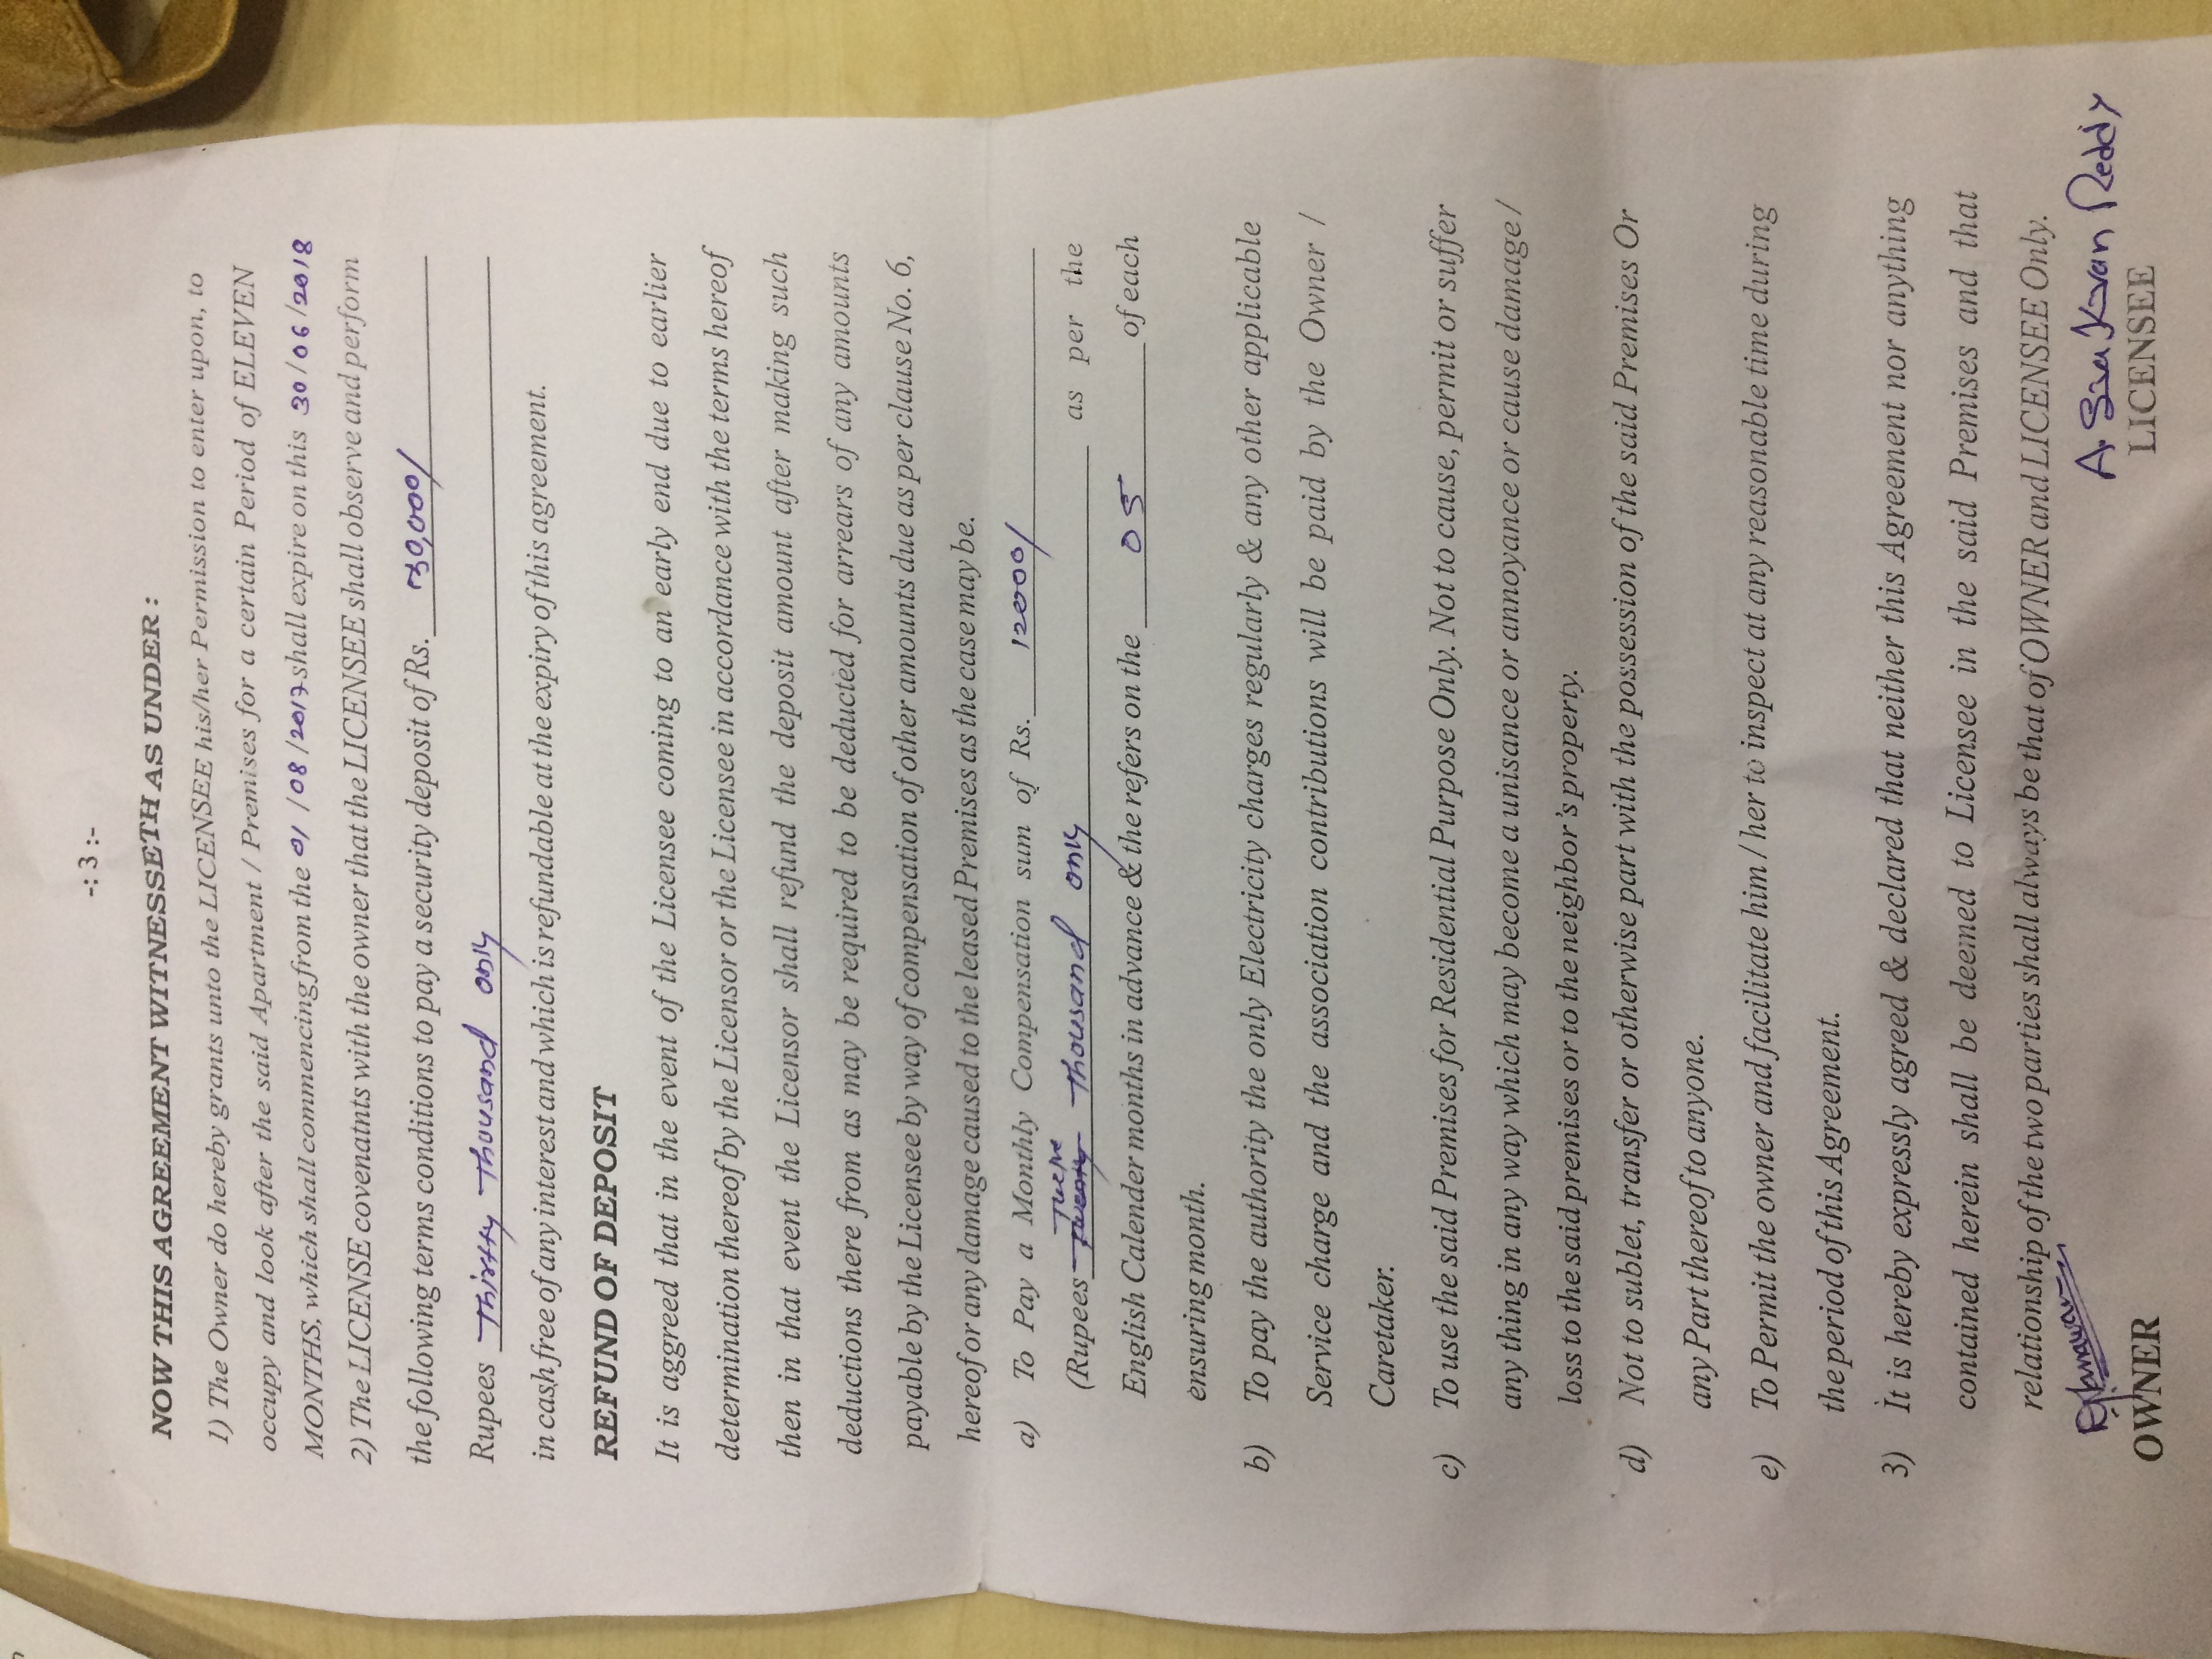 -: 3 :-
NOW THIS AGREEMENT WITNESSETH AS UNDER :
1) The Owner do hereby grants unto the LICENSEE his/her Permission to enter upon, to
occupy and look after the said Apartment / Premises for a certain Period of ELEVEN
MONTHS, which shall commencing from the 01/08/2017 shall expire on this 30/06/2018
2) The LICENSE covenatnts with the owner that the LICENSEE shall observe and perform
the following terms conditions to pay a security deposit of Rs. 30,000/
Rupees Thirty Thousand only
in cash free of any interest and which is refundable at the expiry of this agreement.
REFUND OF DEPOSIT
It is aggreed that in the event of the Licensee coming to an early end due to earlier
determination thereof by the Licensor or the Licensee in accordance with the terms hereof
then in that event the Licensor shall refund the deposit amount after making such
deductions there from as may be required to be deducted for arrears of any amounts
payable by the Licensee by way of compensation of other amounts due as per clause No. 6,
hereof or any damage caused to the leased Premises as the case may be.
a) To Pay a Monthly Compensation sum of Rs. 12000/
(Rupees Thousand only as per the
English Calender months in advance & the refers on the 05 of each
ensuring month.
b) To pay the authority the only Electricity charges regularly & any other applicable
Service charge and the association contributions will be paid by the Owner /
Caretaker.
c) To use the said Premises for Residential Purpose Only. Not to cause, permit or suffer
any thing in any way which may become a unisance or annoyance or cause damage /
loss to the said premises or to the neighbor's property.
d) Not to sublet, transfer or otherwise part with the possession of the said Premises Or
any Part thereof to anyone.
e) To Permit the owner and facilitate him / her to inspect at any reasonable time during
the period of this Agreement.
3) It is hereby expressly agreed & declared that neither this Agreement nor anything
contained herein shall be deemed to Licensee in the said Premises and that
relationship of the two parties shall always be that of OWNER and LICENSEE Only.
Reddy
OWNER LICENSEE